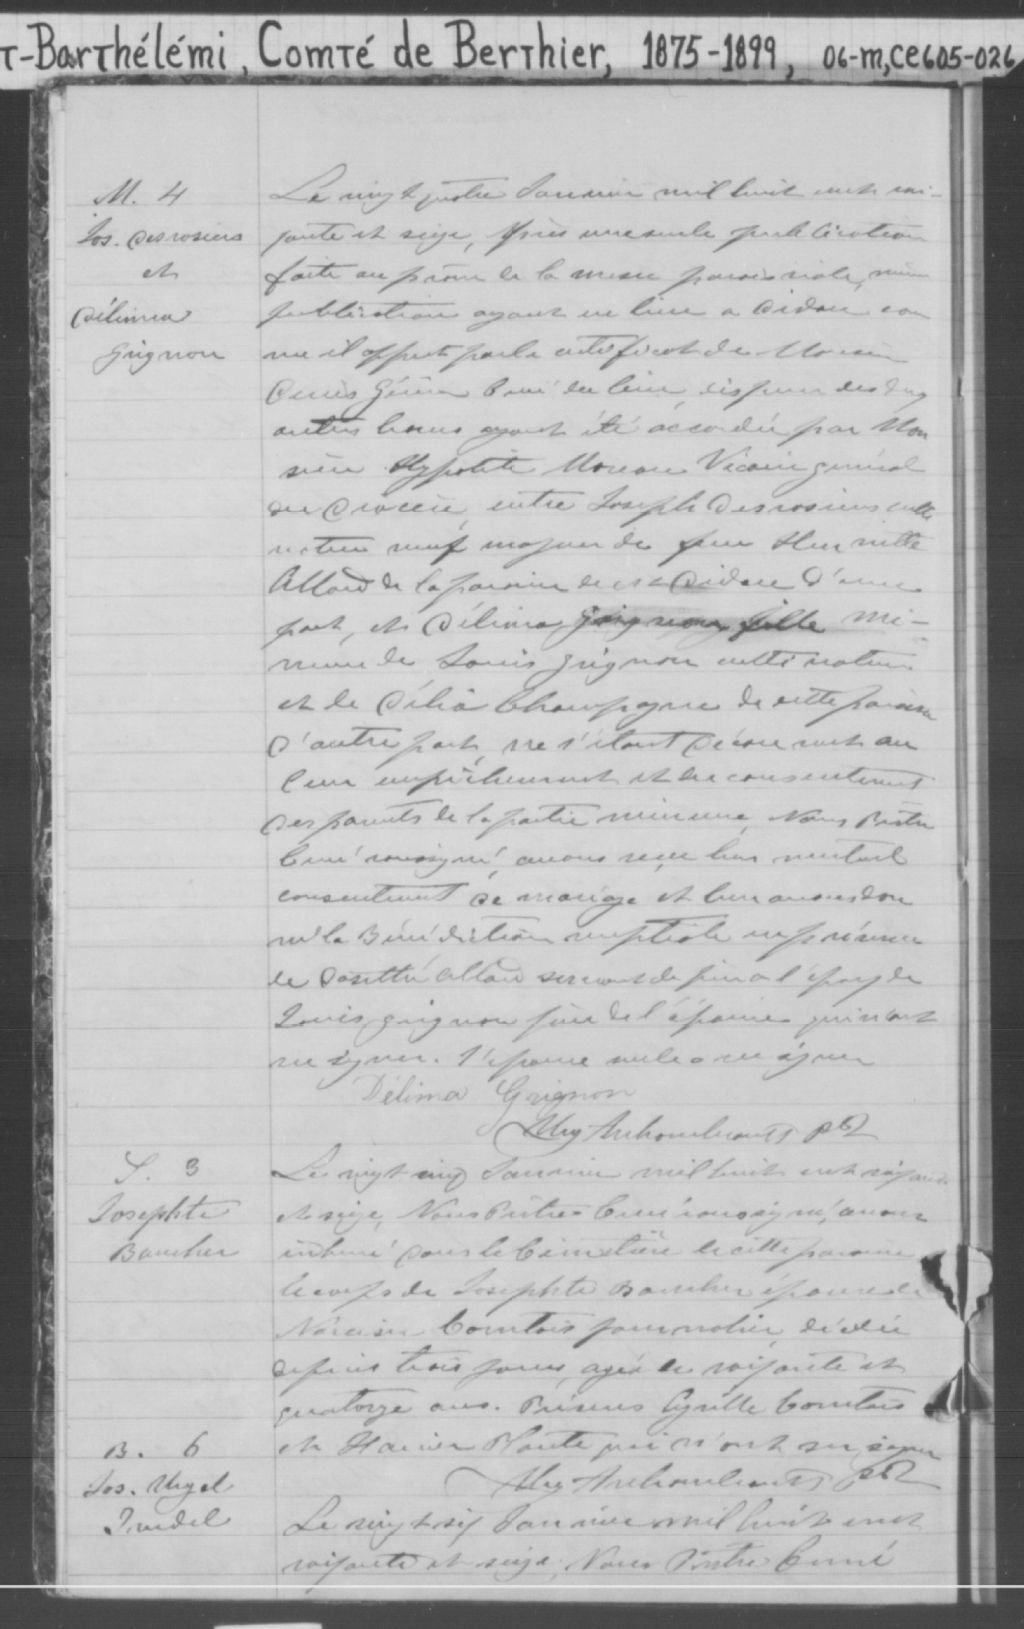 T-Barthélémi, Comté de Berthier, 1875-1899, 06-M,CE605-026
M. 4
Jos. Desrosiers
et
Délima
Grignon
Le vingt quatre Janvier mil huit cent soi-
xante et seize, après une seule publication
faite au prône de la messe paroissiale, même
publication ayant eu lieu à Didace com
me il appert par le certificat de Monsieur
Denis Curé du lieu, dispense des deux
autres bancs ayant été accordée par Mon
sieur Hyppolite Moreau Vicaire général
du Diocèse, entre Joseph Desrosiers culti
vateur veuf majeur de feue Henriette
Allard de la paroisse de St Didace d'une
part, et Délima Grignon fille mi-
neure de Louis Grignon cultivateur
et de Délia Champagne de cette paroisse
d'autre part, ne s'étant découvert au
cun empêchement et du consentement
des parents de la partie mineure, Nous Prêtre
Curé soussigné, avons reçu leur mutuel
consentement de mariage et leur avons don
né la Bénédiction nuptiale en présence
de Allard servant de père à l'époux de
Louis Grignon père de l'épouse qui n'ont
su signer. L'épouse seule a su signer
Délima Grignon
Archambault ptre
S. 3
Josephte
Boucher
Le vingt cinq Janvier mil huit cent soixante
et seize, Nous Prêtre Curé soussigné, avons
inhumé dans le Cimetière de cette paroisse
le corps de Josephte Boucher épouse de
Narcisse Comtois journalier, décédée
depuis trois jours, agée de soixante et
quatorze ans. Présens Cyrille Comtois
et Plante qui n'ont su signer
Archambault ptre
B. 6
Jos. Ungel
Trudel
Le vingt six Janvier mil huit cent
soixante et seize, Nous Prêtre Curé